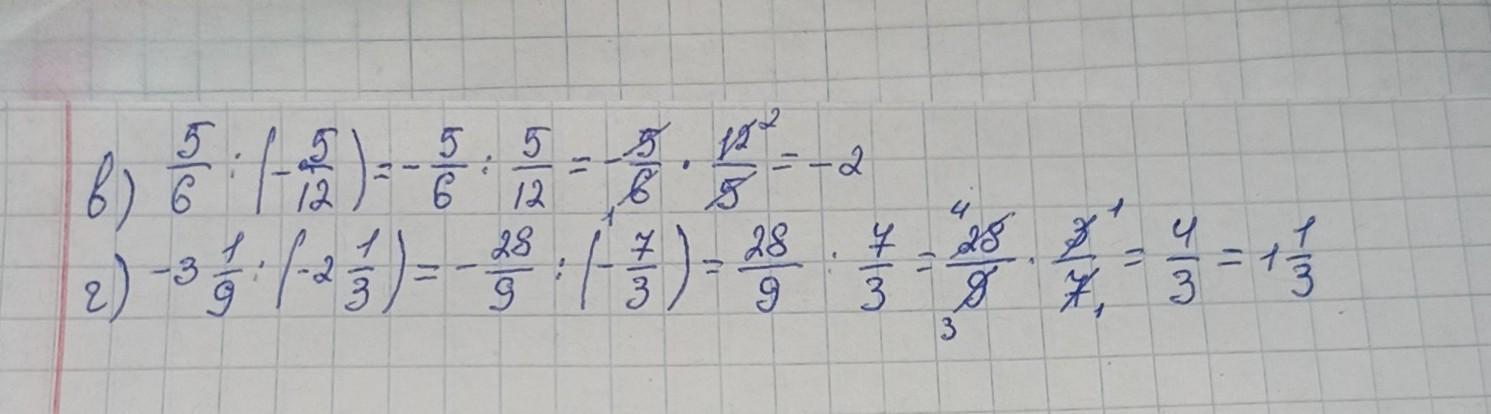 в) 5/6 : (-5/12) = -5/6 : 5/12 = -5/6 · 12/5 = -2
г) -3 1/9 : (-2 1/3) = -28/9 : (-7/3) = 28/9 : 7/3 = 28/9 · 3/7 = 4/3 = 1 1/3